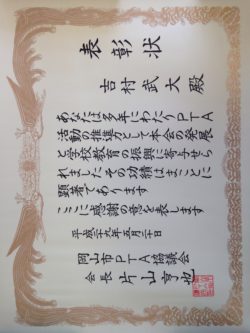 表彰状
吉村武大殿
あなたは多年にわたりPTA
活動の推進力として本会の発展
と学校教育の振興に寄与せら
れましたその功績はまことに
顕著であります
ここに感謝の意を表します
平成二十九年五月二十日
岡山市PTA協議会
会長 片山亨也